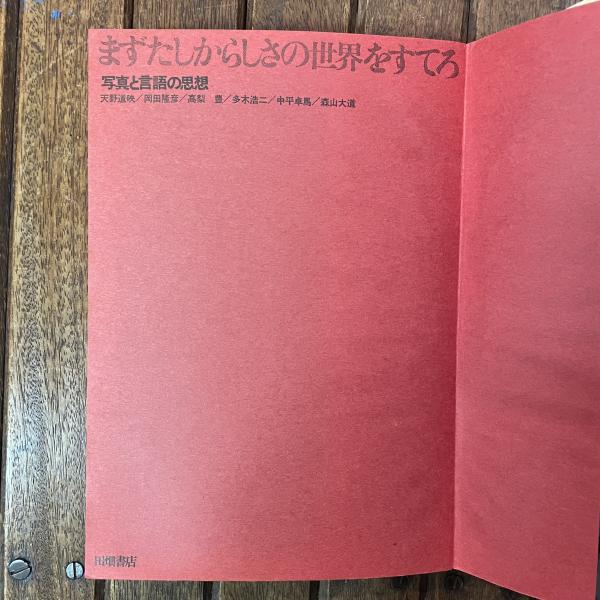 まずたしからしさの世界をすてろ
写真と言語の思想
天野道映／岡田隆彦／高梨　豊／多木浩二／中平卓馬／森山大道
田畑書店